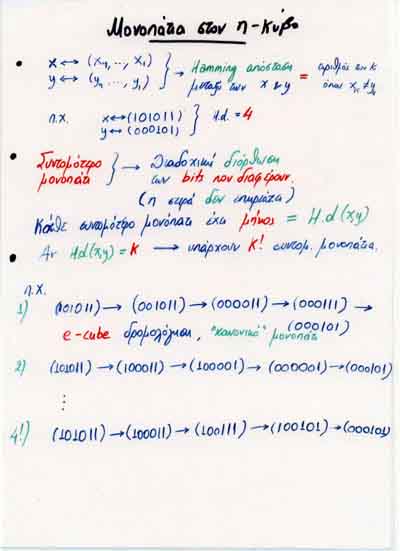 Μονοπάτια στον η-κύβο
• x ↔ (xη, ..., x1) } → Hamming απόσταση = αριθμός των κ
y ↔ (yη ..., y1) μεταξύ των x & y όπου xκ ≠ yκ
π.χ. x ↔ (101011) } H.d. = 4
y ↔ (000101)
• Συντομότερο } → Διαδοχική διόρθωση
μονοπάτι των bits που διαφέρουν.
(η σειρά δεν επηρεάζει)
Κάθε συντομότερο μονοπάτι έχει μήκος = H.d(x,y)
• Αν Hd(x,y) = κ → υπάρχουν κ! συντομ. μονοπάτια.
π.χ.
1) (101011) → (001011) → (000011) → (000111) →
(000101)
e-cube δρομολόγηση, "κανονικό" μονοπάτι
2) (101011) → (100011) → (100001) → (000001) → (000101)
⋮
4!) (101011) → (100011) → (100111) → (100101) → (000101)